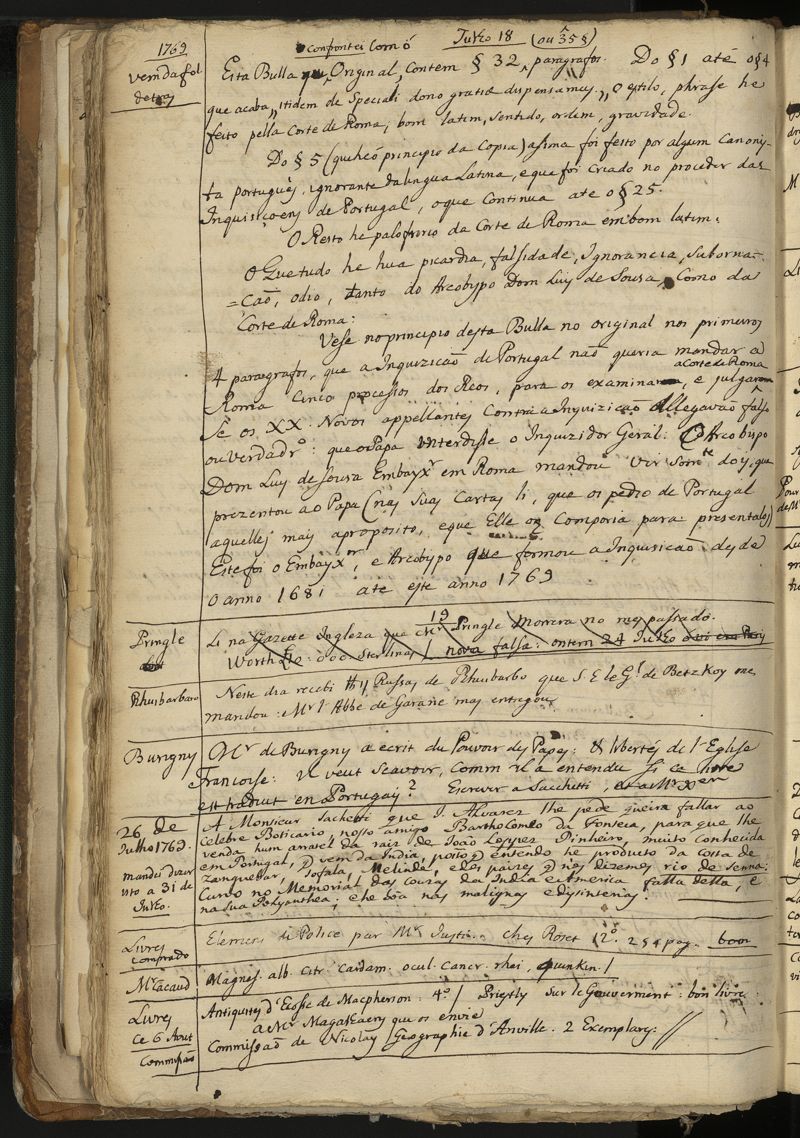 1769
vem da fol
detras
confrontei com ó Julho 18 (ou 35 §)
Esta Bulla Original, contem § 32, paragrafos. Do § 1 até o § 4
que acaba, itidem de Speciali dono gratiæ dispensamus., O estilo, phrase he
feito pella Corte de Roma; bom latim, sentido, ordem, gravidade.
Do § 5 (que he ó principio da Copia) assima foi feito por algum Canonis-
ta portugues, ignorante da lingua Latina, e que foi criado no proceder das
Inquisiçoens de Portugal, o que continua ate o § 25.
O Resto he palofrorio da Corte de Roma em bom latim.
O Que tudo he hua picardia, falsidade, Ignorancia, suborna-
=caõ, odio, tanto do Arcobypo Dom Luy de Sousa, Como da
Corte de Roma:
Vese no principio desta Bulla no original nos primeiros
4 paragrafos, que a Inquiziçaõ de Portugal naõ queria mandar a
Roma Cinco processos dos Reos, para os examinar a Corte de Roma, e julgar
se os XX. Novos appellantes Contra a Inquiziçaõ Allegavaõ falso
ou verdadro: que o Papa interdisse o Inquizidor Geral: O Arcobispo
Dom Luy de Sousa Embayxr em Roma mandou vir somte doys, que
prezentou ao Papa (nas suas Cartas li, que os pedio de Portugal
aquelles mais a proposito, e que Elle os Comporia para presentalos)
Este foi o Embayxor, e Arcobypo que formou a Inquisicaõ desde
o anno 1681 até este anno 1769
Pringle
19
Li na Gazette Ingleza que Mr Pringle Morrera no mes passado.
Worth Lio: 000 Sterlinas / nova falsa: ontem 24 Julho
Rhuibarbaro
Neste dia recebi Russas de Rhuibarbo que S. E. le Gl de Betzkoy me
mandou: Mr l'Abbe de Garane mas entregou
Burigny
Mr de Burigny a ecrit du Pouvoir des Papes: & libertés de l'Eglise
Francoise: Il veut scavoir, Comm il a entendu Si ce livre
est traduit en Portugais? Escrever a Sacchetti,
26 de
Julho 1769.
mandei dizer
isto a 31 de
Julho.
A Monsieur Sachetti que J. Alvarez lhe pede queira fallar ao
Celebre Boticario, nosso amigo Bartholomeo da Fonseca, para que lhe
venda hum arratel da raiz de Joaõ Loppez Pinheiro, muito conhecida
em Portugal, q vem da India, posto q entendo he producto da Costa de
Zanguebar, Sofala, Melinde, e dos paizes q nos dizemos rio de Senna:
Curvo no Memorial das couzas da India e America falla della, e
na sua Polyanthea; e he boa nas malignas e dysinterias.
Livres
Comprado
Elemens de Police par Mr Justi. Chez Rozet 12o. 254 pag. boon
Mr Cacaud
Magnes. alb. Citr. Cardam. ocul. Cancr. rhei, quinkin. /
Livres
ce 6 Aout
Antiquites d'Ecosse de Macpherson. 4o / Priestly sur le Gouverment: bon livre
a Mr Magalhaens que os envie
Commissaõ
Commissaõ de Nicolay / Geographie d'Anville. 2 Exemplares. //